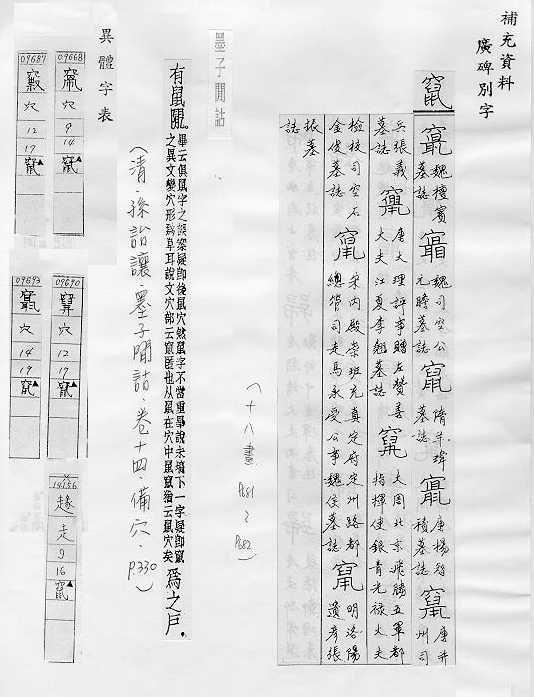 補充資料
廣碑別字
竄
魏檀賓墓誌
魏司空公元瞻墓誌
隋羊瑋墓誌
唐楊
積墓誌
唐并州司
兵張義墓誌
唐大理評事贈左贊善大夫江夏李翹墓誌
大周北京飛勝五軍都指揮使銀青光祿大夫
檢校司空石金俊墓誌
宋內殿崇班充真定府定州路都總管司走馬承受公事魏侯墓誌
明洛陽
張彥
振墓誌
(十八畫 P681~P682)
墨子閒詁
有鼠竄
畢云俱鼠字之誤案疑即後鼠穴然鼠字不當重畢說未塙下一字疑即竄
之異文變穴形為阜耳說文穴部云竄匿也从鼠在穴中鼠竄猶云鼠穴矣
為之戶
(清.孫詒讓.墨子閒詁.卷十四.備穴.P330)
異體字表
09668
穴
9
14
竄
09687
穴
12
17
竄
09690
穴
12
17
竄
09693
穴
14
19
竄
14156
走
9
16
竄